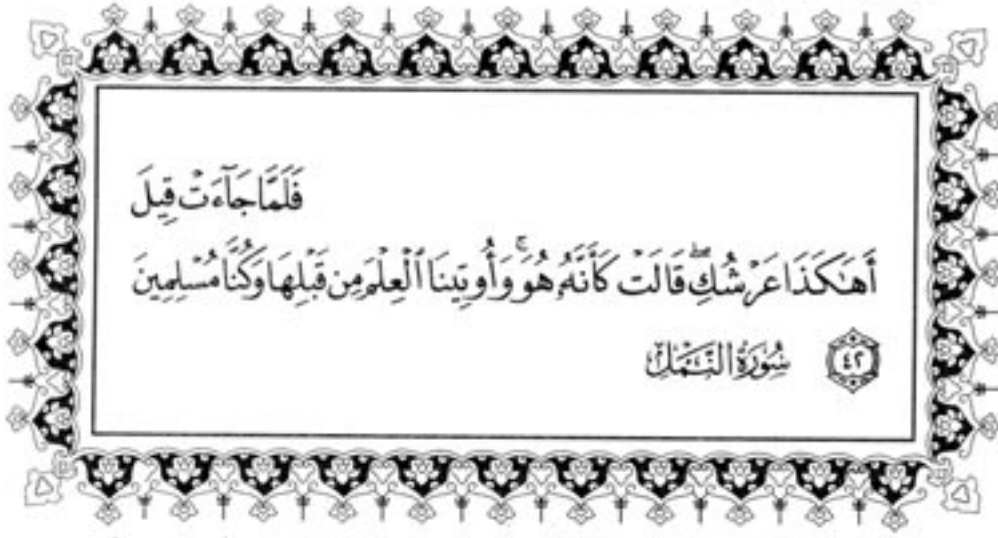 فَلَمَّا جَآءَتْ قِيلَ
أَهَٰكَذَا عَرْشُكِۖ قَالَتْ كَأَنَّهُۥ هُوَۚ وَأُوتِينَا ٱلْعِلْمَ مِن قَبْلِهَا وَكُنَّا مُسْلِمِينَ
٤٢ سُورَةُ النَّمْلِ